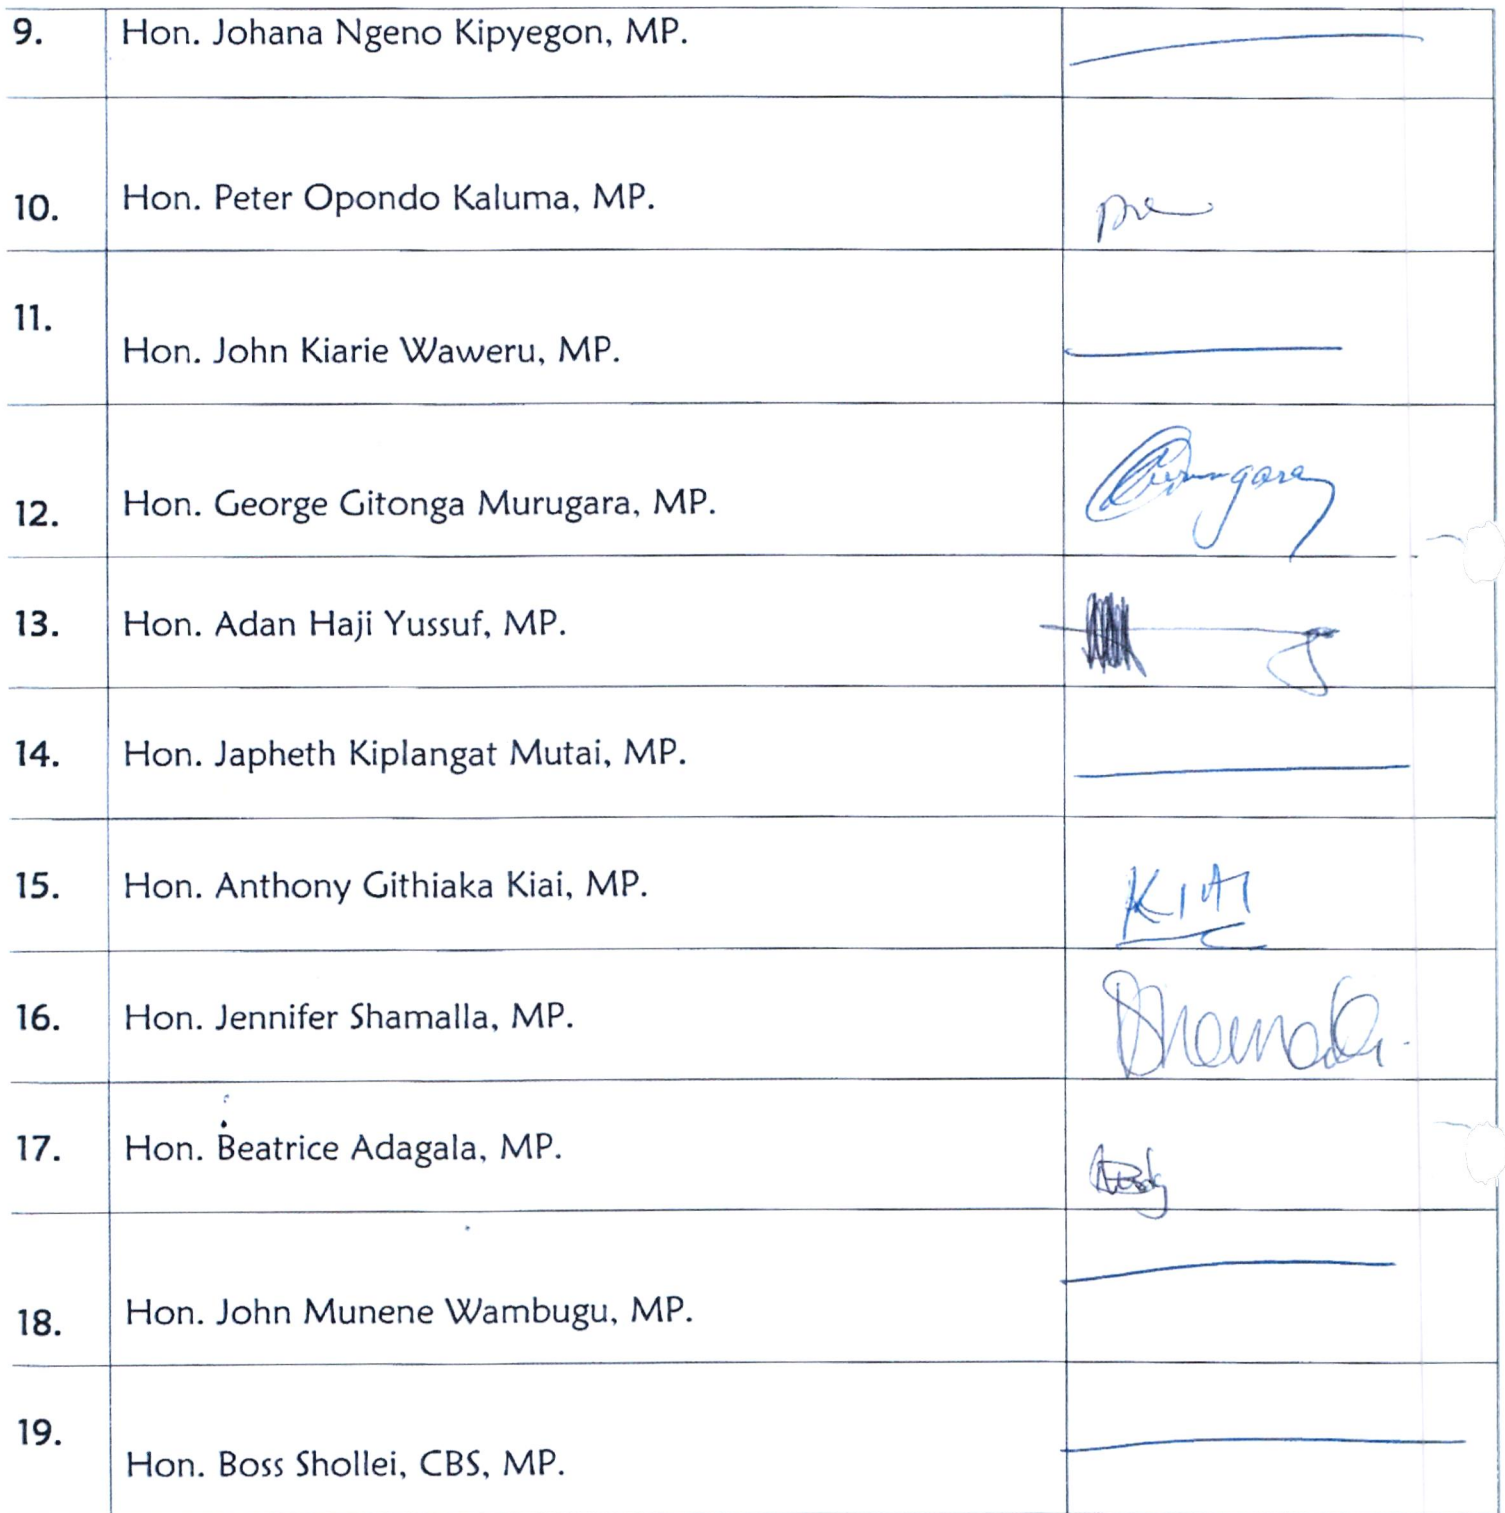 9. Hon. Johana Ngeno Kipyegon, MP.
10. Hon. Peter Opondo Kaluma, MP.
11. Hon. John Kiarie Waweru, MP.
12. Hon. George Gitonga Murugara, MP.
13. Hon. Adan Haji Yussuf, MP.
14. Hon. Japheth Kiplangat Mutai, MP.
15. Hon. Anthony Githiaka Kiai, MP. KIAI
16. Hon. Jennifer Shamalla, MP.
17. Hon. Beatrice Adagala, MP.
18. Hon. John Munene Wambugu, MP.
19. Hon. Boss Shollei, CBS, MP.